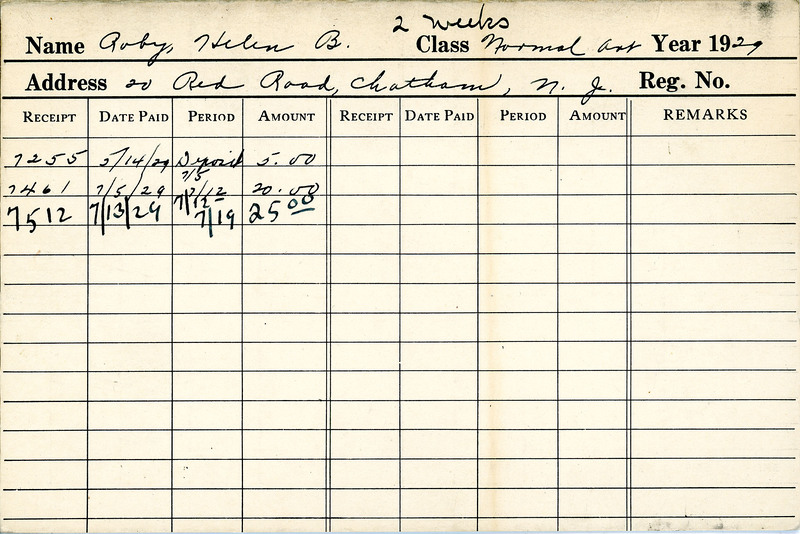 2 weeks
Name Roby, Helen B. Class Normal Art Year 1929
Address 20 Red Road, Chatham, N. J. Reg. No.
RECEIPT DATE PAID PERIOD AMOUNT RECEIPT DATE PAID PERIOD AMOUNT REMARKS
7255 5/14/29 Deposit 5.00
7/5
7461 7/5/29 7/12 20.00
7512 7/13/29 7/12 25.00
7/19